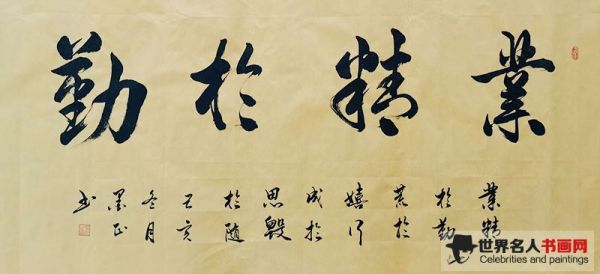 業精於勤
業精
於勤
荒於
嬉行
成於
思毀
於隨
己亥
冬月
书
世界名人书画网
Celebrities and paintings